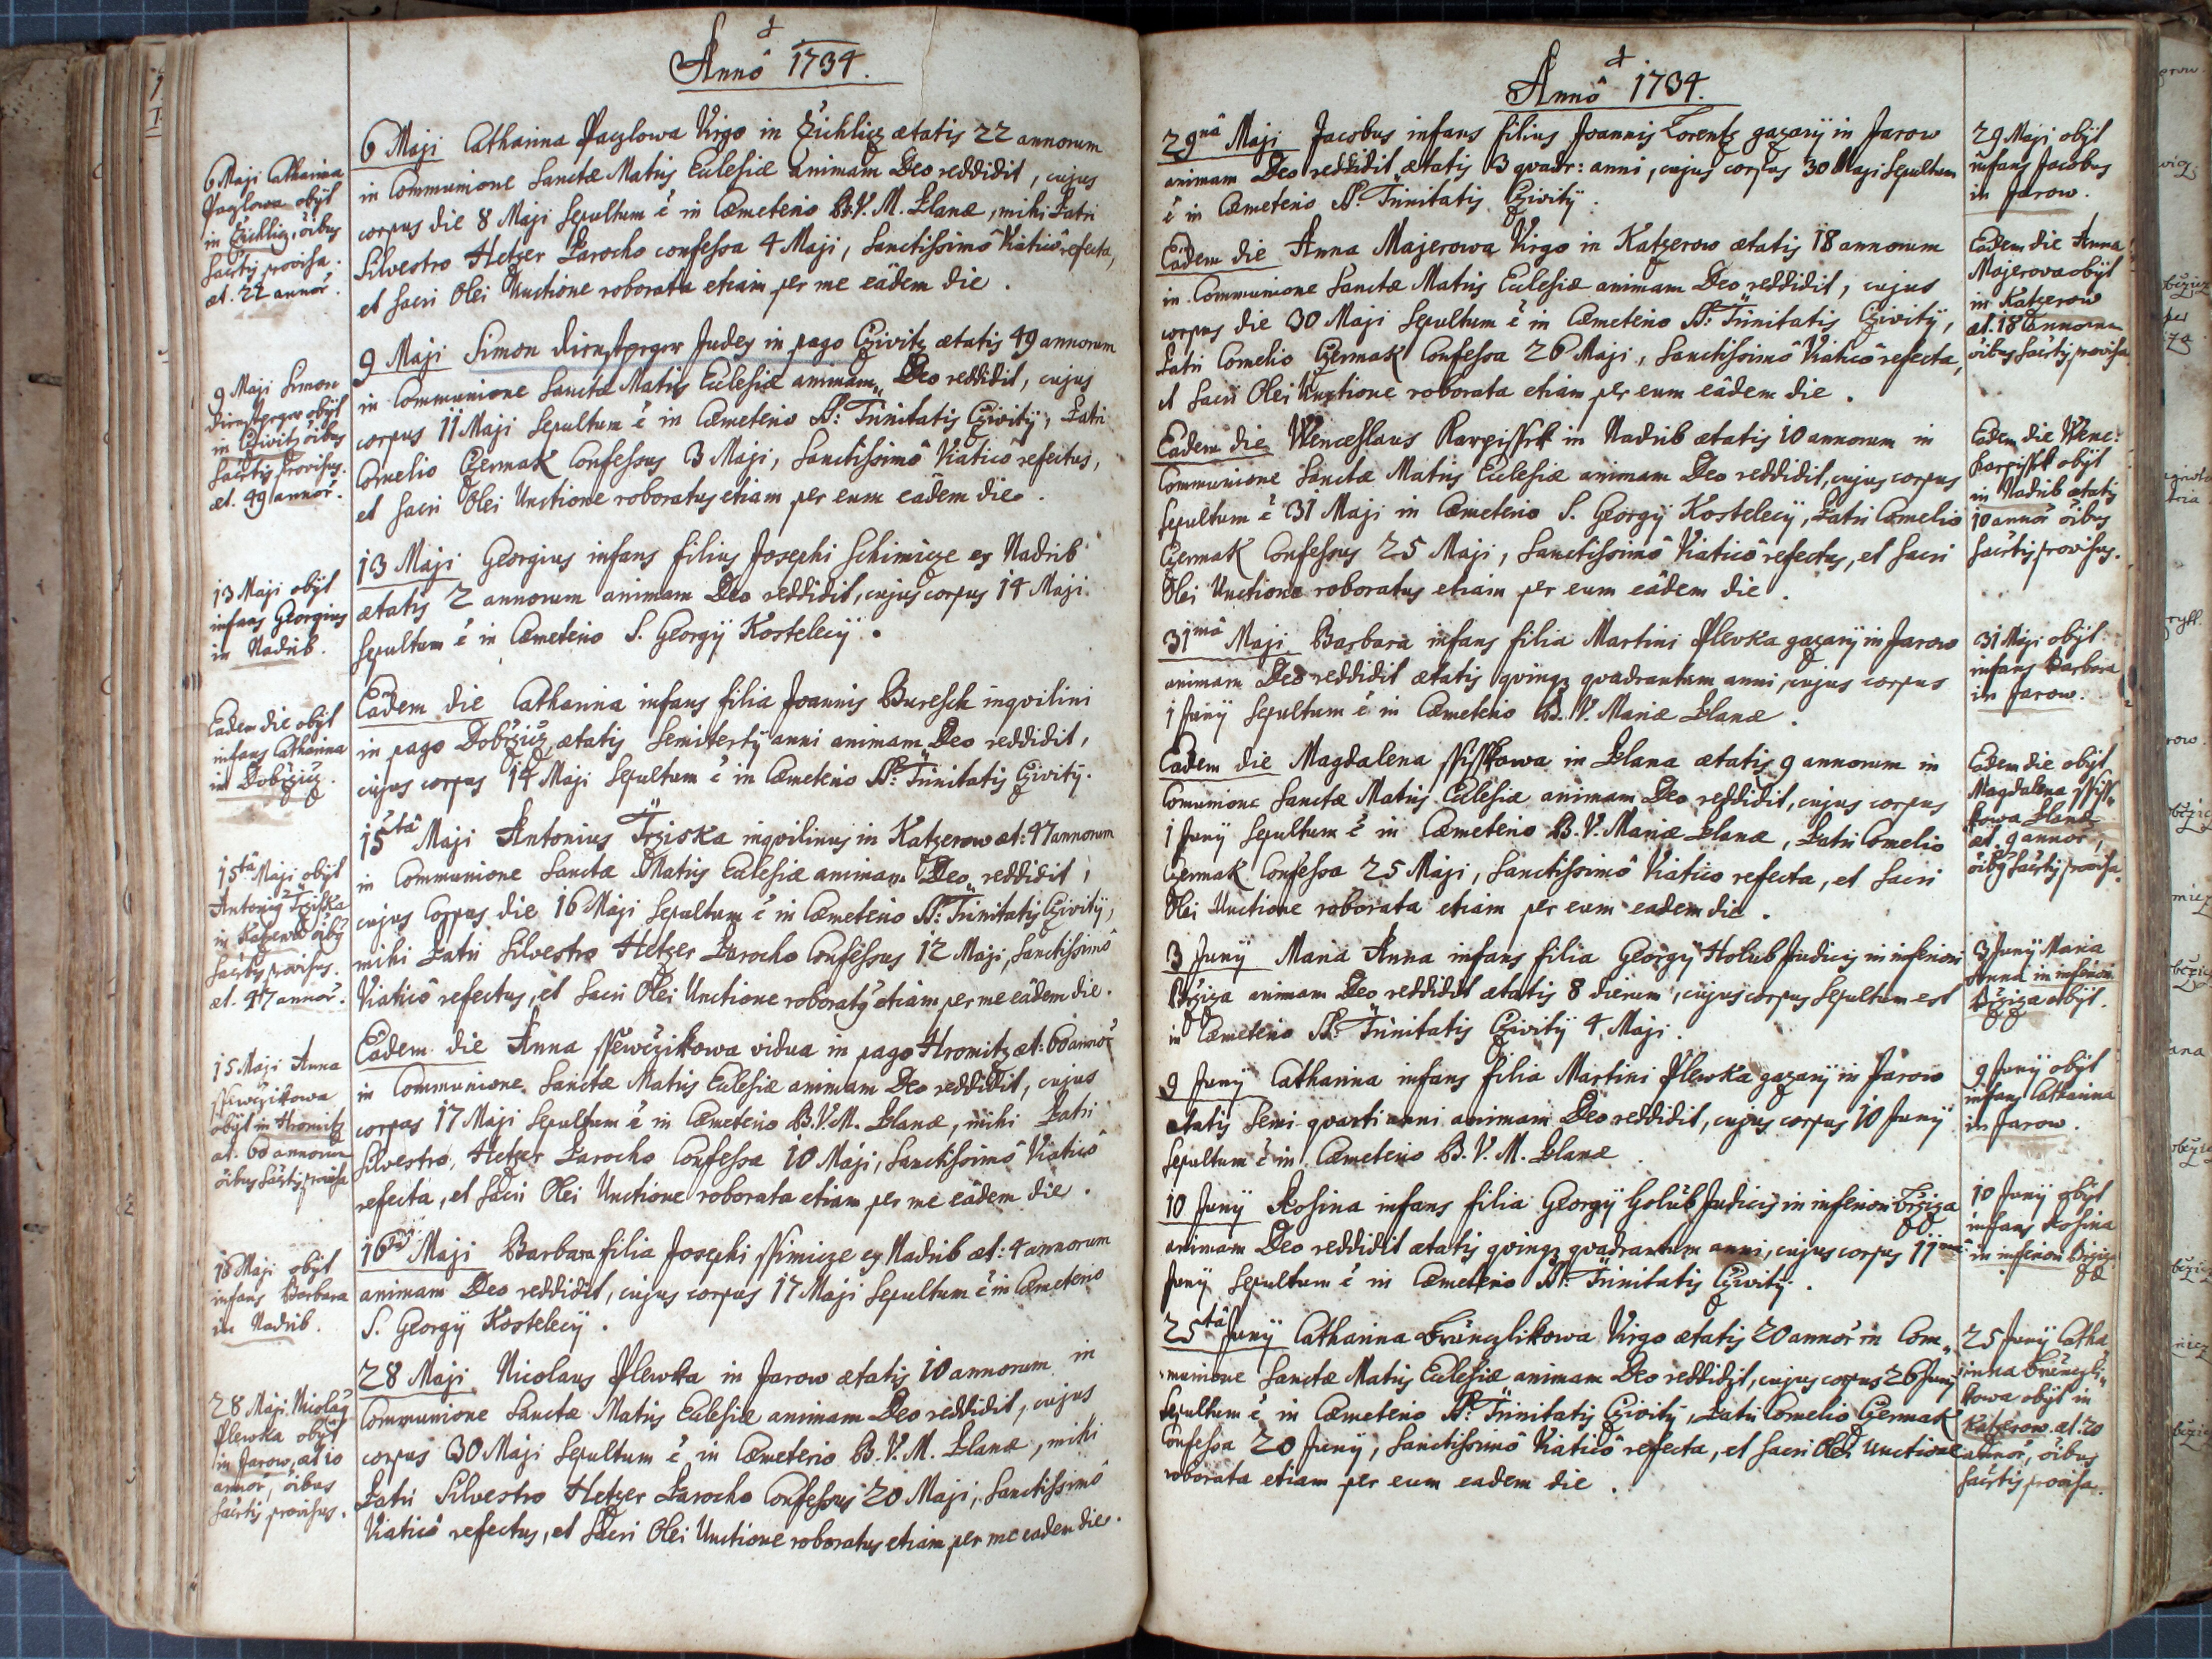 Annô 1734.
6 Maji Catharina Paczlowa Virgo in Čichlicz ætatis 22 annorum
in Communione Sanctæ Matris Ecclesiæ animam Deo reddidit, cujus
corpus die 8 Maji Sepultum ẽ in Cæmeterio B.V.M. Planæ, mihi Patri
Silvestro Hetzer Parocho confessa 4 Maji, Sanctissimô Viaticô refecta,
et Sacri Olei Unctione roborata etiam per me eâdem die.
6 Maji Catharina
Paczlowa obijt
in Čichlicz, õibus
Sacrtis provisa.
æt. 22 annor̃.
9 Maji Simon Dirnstperger Judex in pago Cziwitz ætatis 49 annorum
in Communione Sanctæ Matris Ecclesiæ animam Deo reddidit, cujus
corpus 11 Maji Sepultum ẽ in Cæmeterio SS: Trinitatis Cziwitÿ, Patri
Cornelio Czermak Confessus 3 Maji, Sanctissimô Viaticô refectus,
et Sacri Olei Unctione roboratus etiam per eum eâdem die.
9 Maji Simon
Dirnstperger obijt
in Cziwitz õibus
Sacrtis provisus.
æt. 49 annor̃.
13 Maji Georgius infans filius Josephi Schimicze ex Nadrib
ætatis 2 annorum animam Deo reddidit, cujus corpus 14 Maji
Sepultum ẽ in Cæmeterio S. Georgÿ Kostelecÿ.
13 Maji obijt
infans Georgius
in Nadrib.
Eâdem die Catharina infans filia Joannis Buresch inqvilini
in pago Dobřzicz, ætatis Semitertÿ anni animam Deo reddidit,
cujus corpus 14 Maji Sepultum ẽ in Cæmeterio SS: Trinitatis Cziwitÿ.
Eadem die obijt
infans Catharina
in Dobřzicz.
15tâ Maji Antonius Trziska inqvilinus in Katzerow æt: 47 annorum
in Communione Sanctæ Matris Ecclesiæ animam Deo reddidit,
cujus Corpus die 16 Maji Sepultum ẽ in Cæmeterio SS: Trinitatis Cziwitÿ,
mihi Patri Silvestro Hetzer Parocho Confessus 12 Maji, Sanctissimô
Viaticô refectus, et Sacri Olei Unctione roborat9 etiam per me eâdem die.
15tâ Maji obijt
Antoni9 Trziska
in Katzerow õib9
Sacrtis provisus.
æt. 47 annor̃.
Eâdem die Anna Ssewczikowa vidua in pago Hromitz æt: 60 annor̃
in Communione Sanctæ Matris Ecclesiæ animam Deo reddidit, cujus
corpus 17 Maji Sepultum ẽ in Cæmeterio B.V.M. Planæ, mihi Patri
Silvestro Hetzer Parocho Confessa 10 Maji, Sanctissimô Viaticô
refecta, et Sacri Olei Unctione roborata etiam per me eâdem die.
15 Maji Anna
Ssewczikowa
obijt in Hromitz
æt. 60 annorum
õibus Sacrtis provisa
16tâ Maji Barbara filia Josephi Ssimicze ex Nadrib æt: 4 annorum
animam Deo reddidit, cujus corpus 17 Maji Sepultum ẽ in Cæmeterio
S. Georgÿ Kostelecÿ.
16 Maji obijt
infans Barbara
in Nadrib.
28 Maji Nicolaus Plewka in Jarow ætatis 10 annorum in
Communione Sanctæ Matris Ecclesiæ animam Deo reddidit, cujus
corpus 30 Maji Sepultum ẽ in Cæmeterio B.V.M. Planæ, mihi
Patri Silvestro Hetzer Parocho Confessus 20 Maji, Sanctissimô
Viaticô refectus, et Sacri Olei Unctione roboratus etiam per me eadem die.
28 Maji Nicola9
Plewka obijt
in Jarow, æt 10
annor̃, õibus
Sacrtis provisus.
Annô 1734.
29nâ Maji Jacobus infans filius Joannis Lorentz gazarÿ in Jarow
animam Deo reddidit ætatis 3 qvadr: anni, cujus corpus 30 Maji Sepultum
ẽ in Cæmeterio SS. Trinitatis Cziwitÿ.
29 Maji obijt
infans Jacobus
in Jarow.
Eâdem die Anna Majerowa Virgo in Katzerow ætatis 18 annorum
in Communione Sanctæ Matris Ecclesiæ animam Deo reddidit, cujus
corpus die 30 Maji Sepultum ẽ in Cæmeterio SS: Trinitatis Cziwitÿ,
Patri Cornelio Czermak Confessa 26 Maji, Sanctissimô Viaticô refecta,
et Sacri Olei Unctione roborata etiam per eum eâdem die.
Eadem die Anna
Majerova obijt
in Katzerow
æt. 18 annorum
õibus Sacrtis provisa
Eâdem die Wenceslaus Karpissek in Nadrib ætatis 10 annorum in
Communione Sanctæ Matris Ecclesiæ animam Deo reddidit, cujus corpus
Sepultum ẽ 31 Maji in Cæmeterio S. Georgÿ Kostelecÿ, Patri Cornelio
Czermak Confessus 25 Maji, Sanctissimô Viaticô refectus, et Sacri
Olei Unctione roboratus etiam per eum eâdem die.
Eadem die Wenc:
Karpissek obijt
in Nadrib ætatis
10 annor̃ õibus
Sacrtis provisus.
31mâ Maji Barbara infans filia Martini Plevka gazarÿ in Jarow
animam Deo reddidit ætatis qvinqz qvadrantum anni, cujus corpus
1 Junÿ Sepultum ẽ in Cæmeterio B. V. Mariæ Planæ.
31 Maji obijt
infans Barbara
in Jarow.
Eâdem die Magdalena Ssisskowa in Plana ætatis 9 annorum in
Comunione Sanctæ Matris Ecclesiæ animam Deo reddidit, cujus corpus
1 Junÿ Sepultum ẽ in Cæmeterio B.V. Mariæ Planæ, Patri Cornelio
Czermak Confessa 25 Maji, Sanctissimô Viatico refecta, et Sacri
Olei Unctione roborata etiam per eum eadem die.
Eâdem die obijt
Magdalena Ssiss„
kowa Planæ
æt. 9 annor̃,
õib9 Sacrtis provisa.
3 Junÿ Maria Anna infans filia Georgÿ Holub Judicis in inferiori
Břziza animam Deo reddidit ætatis 8 dierum, cujus corpus Sepultum est
in Cæmeterio SS. Trinitatis Cziwitÿ 4 Maji.
3 Junÿ Maria
Anna in inferiori
Břziza obijt.
9 Junÿ Catharina infans filia Martini Plewka gazarÿ in Jarow
ætatis Semi qvarti anni animam Deo reddidit, cujus corpus 10 Junÿ
Sepultum ẽ in Cæmeterio B. V. M. Planæ
9 Junÿ obijt
infans Catharina
in Jarow.
10 Junÿ Rosina infans filia Georgÿ Holub Judicis in inferiori Břziza
animam Deo reddidit ætatis qvinqz qvadrantum anni, cujus corpus 11mâ
Junÿ Sepultum ẽ in Cæmeterio SS. Trinitatis Cziwitÿ.
10 Junÿ obijt
infans Rosina
in inferiori Břziza
25tâ Junÿ Catharina Brünczlikowa Virgo ætatis 20 annor̃ in Com„
munione Sanctæ Matris Ecclesiæ animam Deo reddidit, cujus corpus 26 Junÿ
Sepultum ẽ in Cæmeterio SS: Trinitatis Cziwitÿ, Patri Cornelio Czermak
Confessa 20 Junÿ, Sanctissimô Viaticô refecta, et Sacri Olei Unctione
roborata etiam per eum eadem die.
25 Junÿ Catha„
rinna Brünczli„
kowa obijt in
Katzerow æt. 20
annor̃, õibus
Sacrtis provisa.